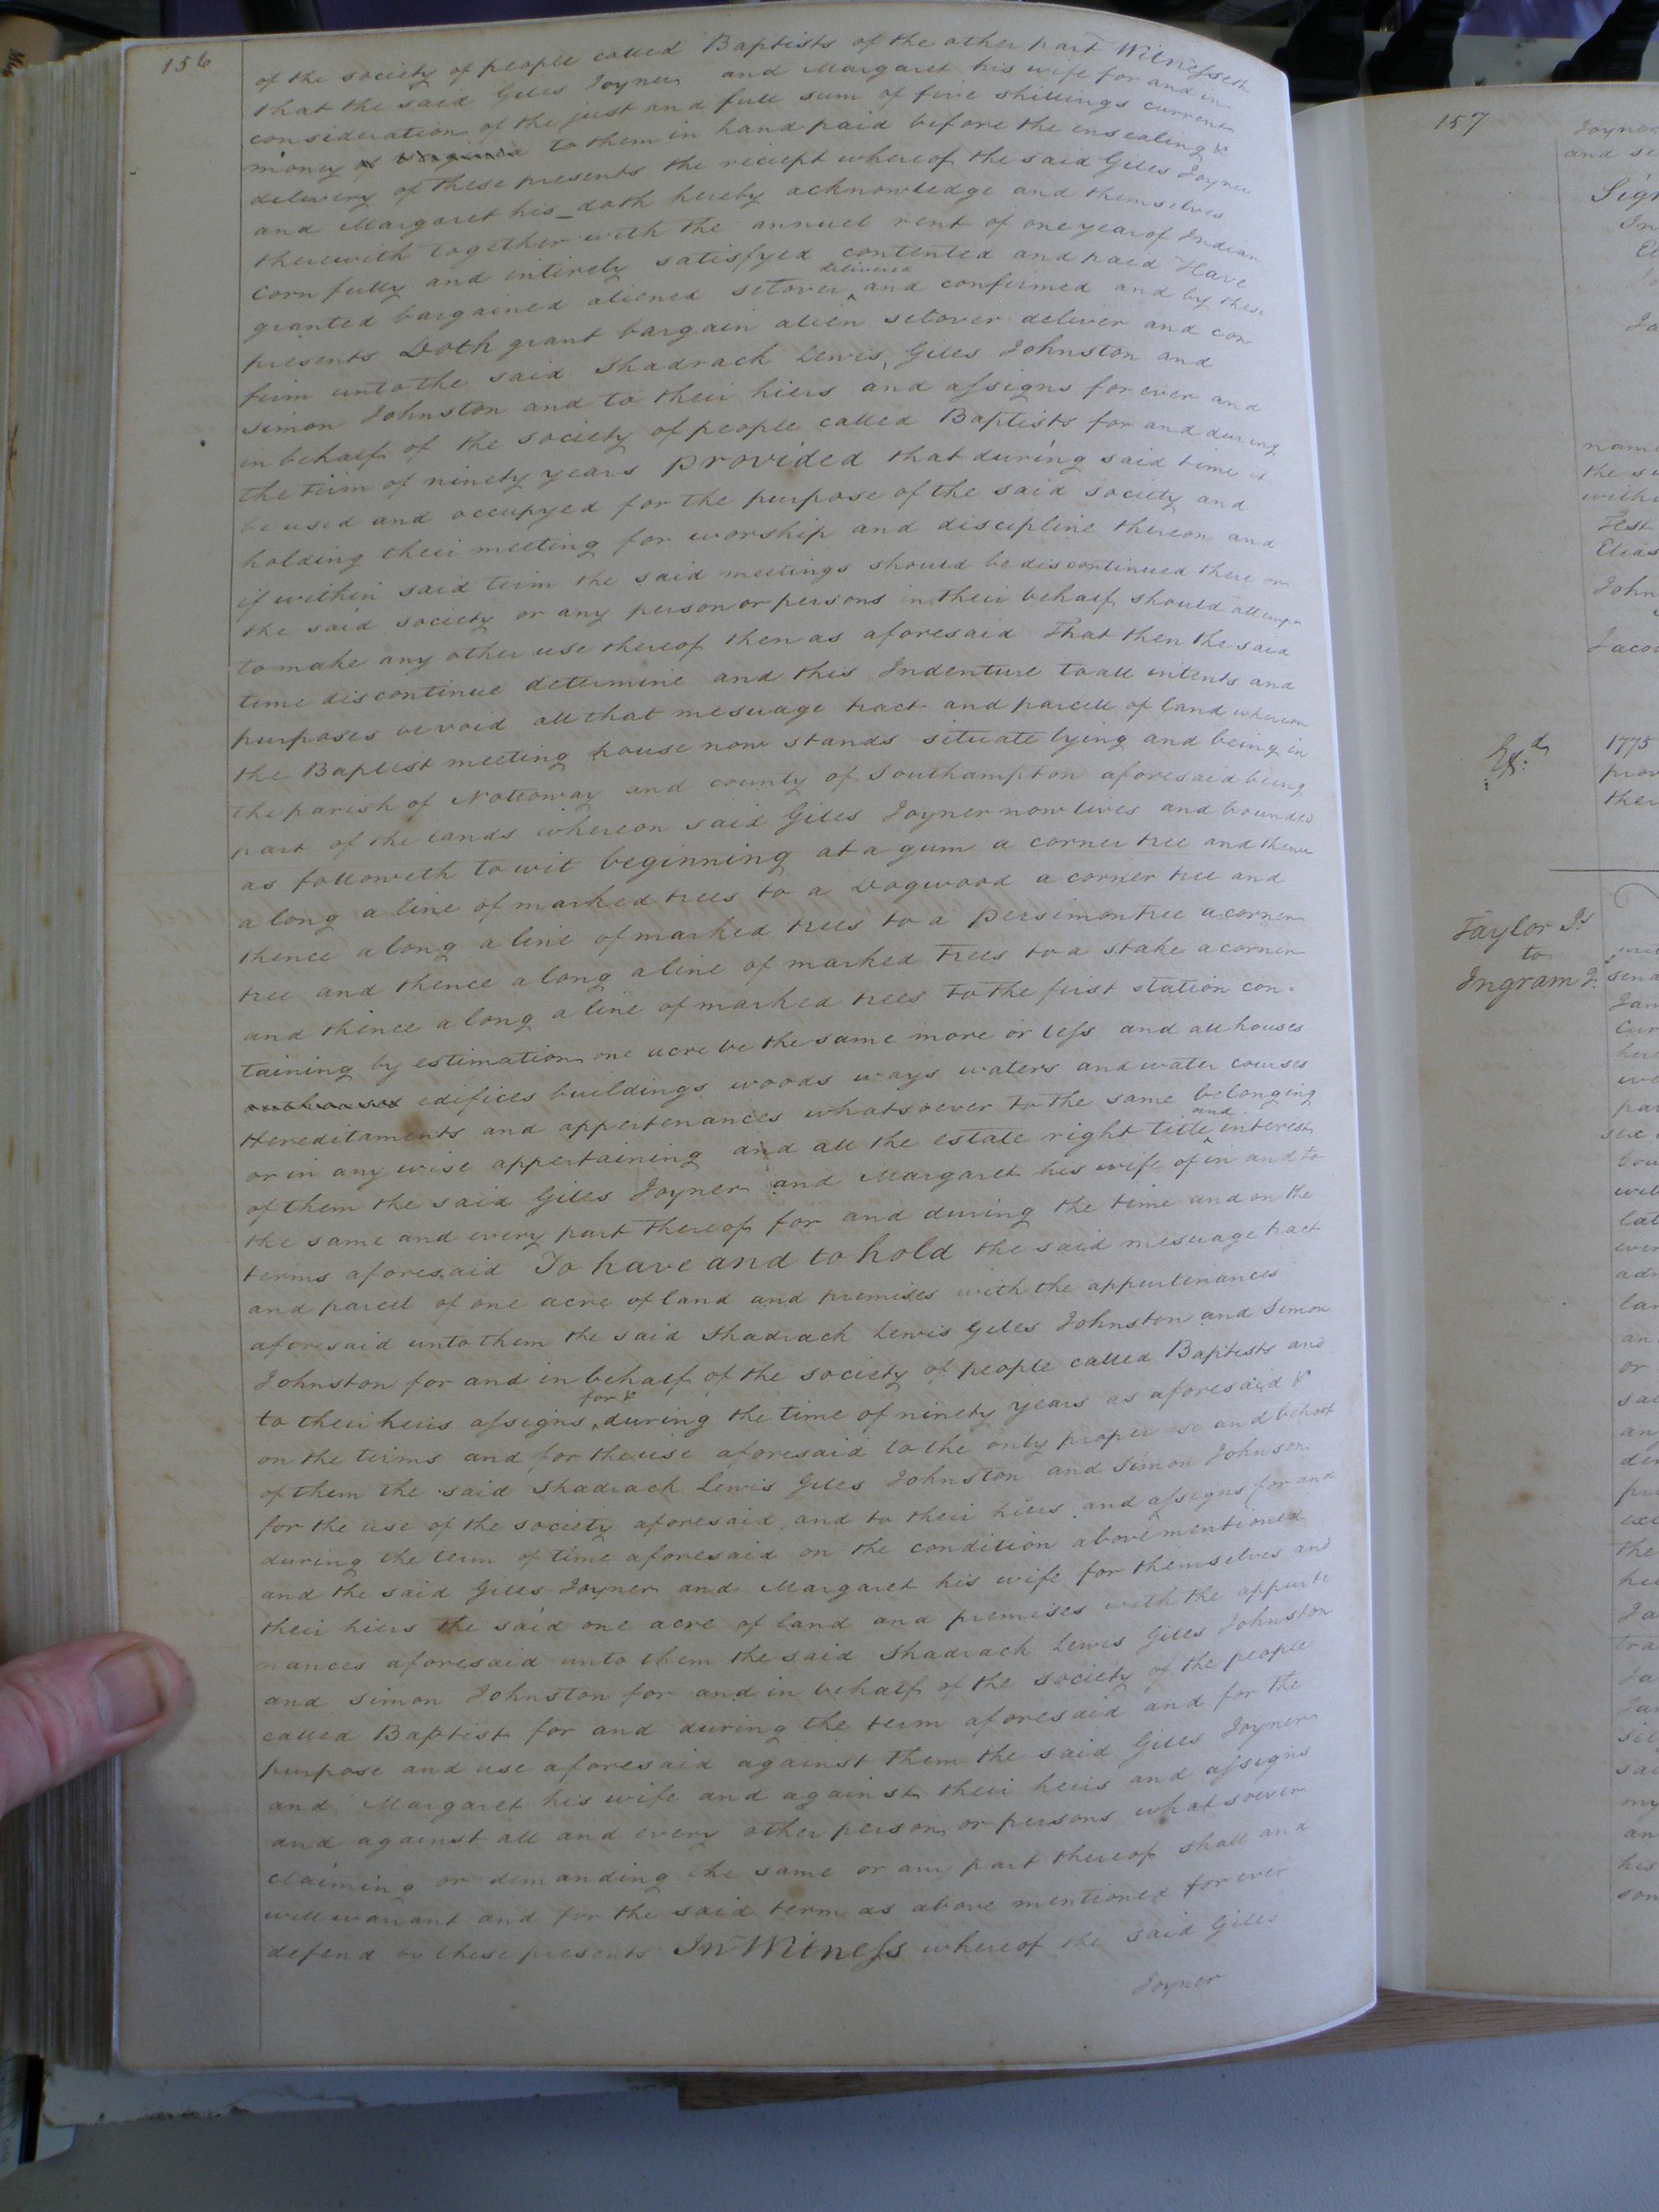 156
of the society of people called Baptists of the other part Witnesseth
that the said Giles Joyner and Margaret his wife for and in
consideration of the just and full sum of five shillings current
money of Virginia to them in hand paid before the ensealing &
delivery of these presents the reciept whereof the said Giles Joyner
and Margaret his _ doth hereby acknowledge and themselves
therewith together with the annuel rent of one year of Indian
Corn fully and intirely satisfyed contented and paid Have
granted bargained aliened setover delivered and confirmed and by these
presents Doth grant bargain alien setover deliver and con
firm unto the said Shadrach Lewis, Giles Johnston and
Simon Johnston and to their hiers and assigns for ever and
in behalf of the society of people called Baptists for and during
the term of ninety years Provided that during said time it
be used and occupyed for the purpose of the said society and
holding their meeting for worship and discipline thereon and
if within said term the said meetings should be discontinued there or
the said society or any person or persons in their behalf should attempt
to make any other use thereof then as aforesaid That then the said
time discontinue determine and this Indenture to all intents and
purposes be void all that mesuage tract and parcell of land whereon
the Baptist meeting house now stands situate lying and being in
the parish of Nottoway and county of Southampton aforesaid being
part of the lands whereon said Giles Joyner now lives and bounded
as followeth to wit beginning at a gum a corner tree and thence
along a line of marked trees to a Dogwood a corner tree and
thence along a line of marked trees to a persimon tree a corner
tree and thence along a line of marked trees to a stake a corner
and thence along a line of marked trees to the first station con=
taining by estimation one acre be the same more or less and all houses
outhouses edifices buildings woods ways waters and water courses
Hereditaments and appertenances whatsoever to the same belonging
or in any wise appertaining and all the estate right title and interest
of them the said Giles Joyner and Margaret his wife of in and to
the same and every part thereof for and during the time and on the
terms aforesaid To have and to hold the said mesuage tract
and parcel of one acre of land and premises with the appurtinances
aforesaid unto them the said Shadrach Lewis Giles Johnston and Simon
Johnston for and in behalf of the society of people called Baptists and
to their heirs assigns for & during the time of ninety years as aforesaid &
on the terms and for the use aforesaid to the only proper use and behoof
of them the said Shadrach Lewis Giles Johnston and Simon Johnson
for the use of the society aforesaid and to their hiers and assigns for and
during the term of time aforesaid on the condition above mentioned
and the said Giles Joyner and Margaret his wife for themselves and
their hiers the said one acre of land and premises with the appurte
nances aforesaid unto them the said Shadrach Lewis Giles Johnston
and Simon Johnston for and in behalf of the society of the people
called Baptist for and during the term aforesaid and for the
purpose and use aforesaid against them the said Giles Joyner
and Margaret his wife and against their heirs and assigns
and against all and every other person or persons whatsoever
claiming or demanding the same or any part thereof shall and
will warrant and for the said term as above mentioned for ever
defend by these presents In Witness whereof the said Giles
Joyner
157
Joyner
and se
Sign
nam
the su
with
Test
Elias
John
Jacob
1775
prov
ther
Taylor Js
to
Ingram J.